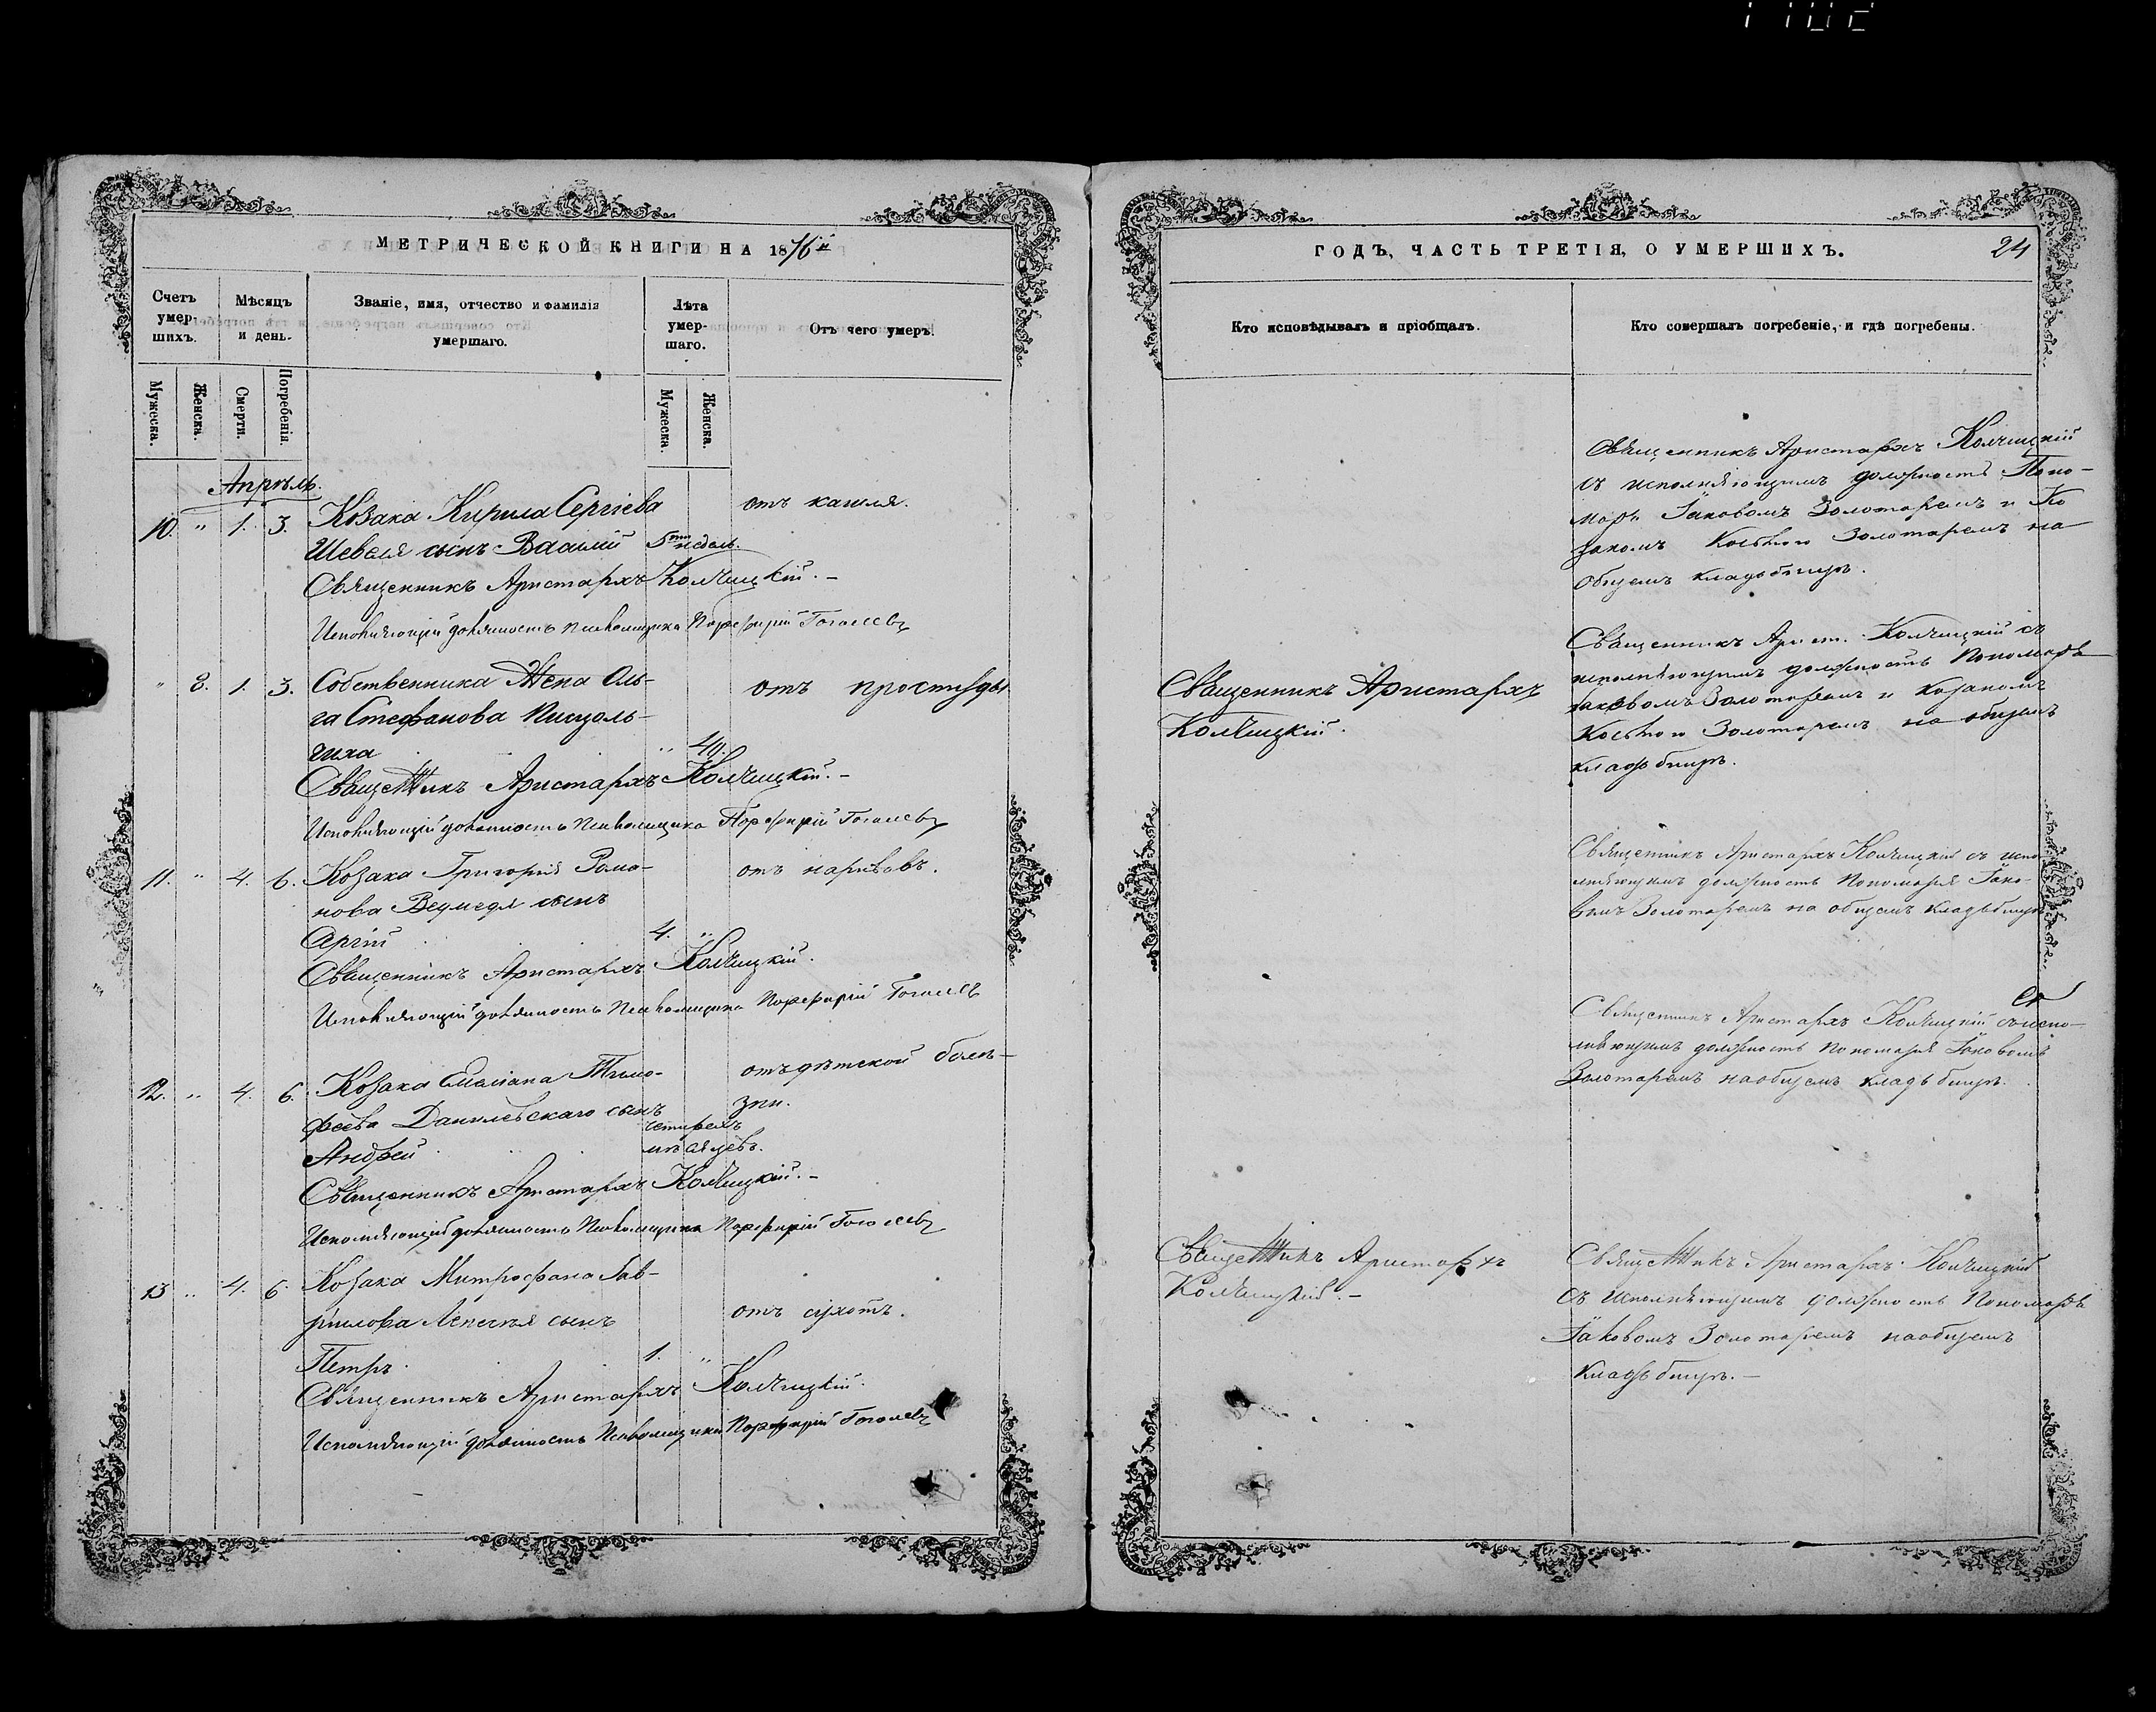 МЕТРИЧЕСКОЙ КНИГИ НА 1876й
Счетъ умер-шихъ.
Мѣсяцъ и день.
Званіе, имя, отчество и фамилія умершаго.
Лѣта умер-шаго.
Отъ чего умеръ.
Мужеска.
Женска.
Смерти.
Погребенія.
Мужеска.
Женска.
Апрѣль.
10. " 1. 3. Козака Кирила Сергіева отъ кашля.
Шевеля сынъ Василій 5ти недѣль.
Священникъ Аристархъ Колчицкій. –
Исполняющій должность Псаломщика Порфирій Гоголевъ
" 8. 1. 3. Собственника Жена Оль- отъ простуды
га Стефанова
гиха " 40.
Священникъ Аристархъ Колчицкій. –
Исполняющій должность Псаломщика Порфирій Гоголевъ
11. " 4. 6. Козака Григорія Рома- отъ нарывовъ.
нова Ведмедя сынъ
Сергій 4. "
Священникъ Аристархъ Колчицкій.
Исполняющій должность Псаломщика Порфирій Гоголевъ
12. " 4. 6. Козака Емеліана Тимо- отъ дѣтской болѣ-
феева Данилевскаго сынъ зни.
Андрей четырехъ
мѣсяцевъ.
Священникъ Аристархъ Колчицкій. –
Исполняющій должность Псаломщика Порфирій Гоголевъ
13 " 4. 6. Козака Митрофана Гав-
рилова сынъ отъ сухотъ.
Петръ 1. "
Священникъ Аристархъ Колчицкій.
Исполняющій должность Псаломщика Порфирій Гоголевъ
ГОДЪ, ЧАСТЬ ТРЕТІЯ, О УМЕРШИХЪ. 24
Кто исповѣдывалъ и пріобщалъ.
Кто совершалъ погребеніе, и гдѣ погребены.
Священникъ Аристархъ Колчицкій
съ исполняющимъ должность Поно-
маря Іаковомъ Золотаремъ и Ко
закомъ Золотаремъ на
общемъ кладбищѣ.
Священникъ Арист. Колчицкій съ
исполняющимъ должность Пономаря
Священникъ Аристархъ Іаковомъ Золотаремъ и Козакомъ
Колчицкій. Золотаремъ на общемъ
кладбищѣ.
Священникъ Аристархъ Колчицкій съ испо-
лняющимъ должность Пономаря Іако-
вомъ Золотаремъ на общемъ кладбищѣ
Священникъ Аристархъ Колчицкій съ испо-
лняющимъ должность Пономаря Іаковомъ
Золотаремъ на общемъ кладбищѣ.
Священникъ Аристархъ Священникъ Аристархъ Колчицкій
Колчицкій. – съ исполняющимъ должность Пономаря
Іаковомъ Золотаремъ на общемъ
кладбищѣ. –